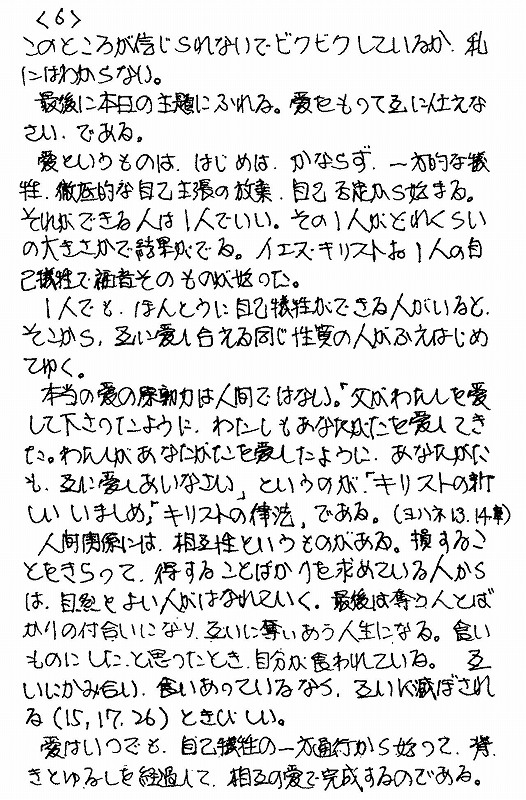 <6>
このところが信じられないでビクビクしているか、私
にはわからない。
最後に本日の主題にふれる。愛をもって互に仕えな
さい、である。
愛というものは、はじめは、かならず、一方的な犠
牲、徹底的な自己主張の放棄、自己否定から始まる。
それができる人は1人でいい。その1人がどれくらい
の大きさかで結果がでる。イエス・キリストお1人の自
己犠牲で福音そのものが始った。
1人でも、ほんとうに自己犠牲ができる人がいると、
そこから、互に愛し合える同じ性質の人がふえはじめ
てゆく。
本当の愛の原動力は人間ではない。「父がわたしを愛
して下さったように、わたしもあなたがたを愛してき
た。わたしがあなたがたを愛したように、あなたがた
も、互に愛しあいなさい」というのが、「キリストの新
しいいましめ」「キリストの律法」である。(ヨハネ13.14章)
人間関係には、相互性というものがある。損するこ
とをきらって、得することばかりを求めている人から
は、自然とよい人がはなれていく。最後は奪う人とば
かりの付合いになり、互いに奪いあう人生になる。食い
ものにした、と思ったとき、自分が食われている。 互
いにかみ合い、食いあっているなら、互いに滅ぼされ
る(15,17,26)ときびしい。
愛はいつでも、自己犠牲の一方通行から始って、
きとゆるしを経過して、相互の愛で完成するのである。